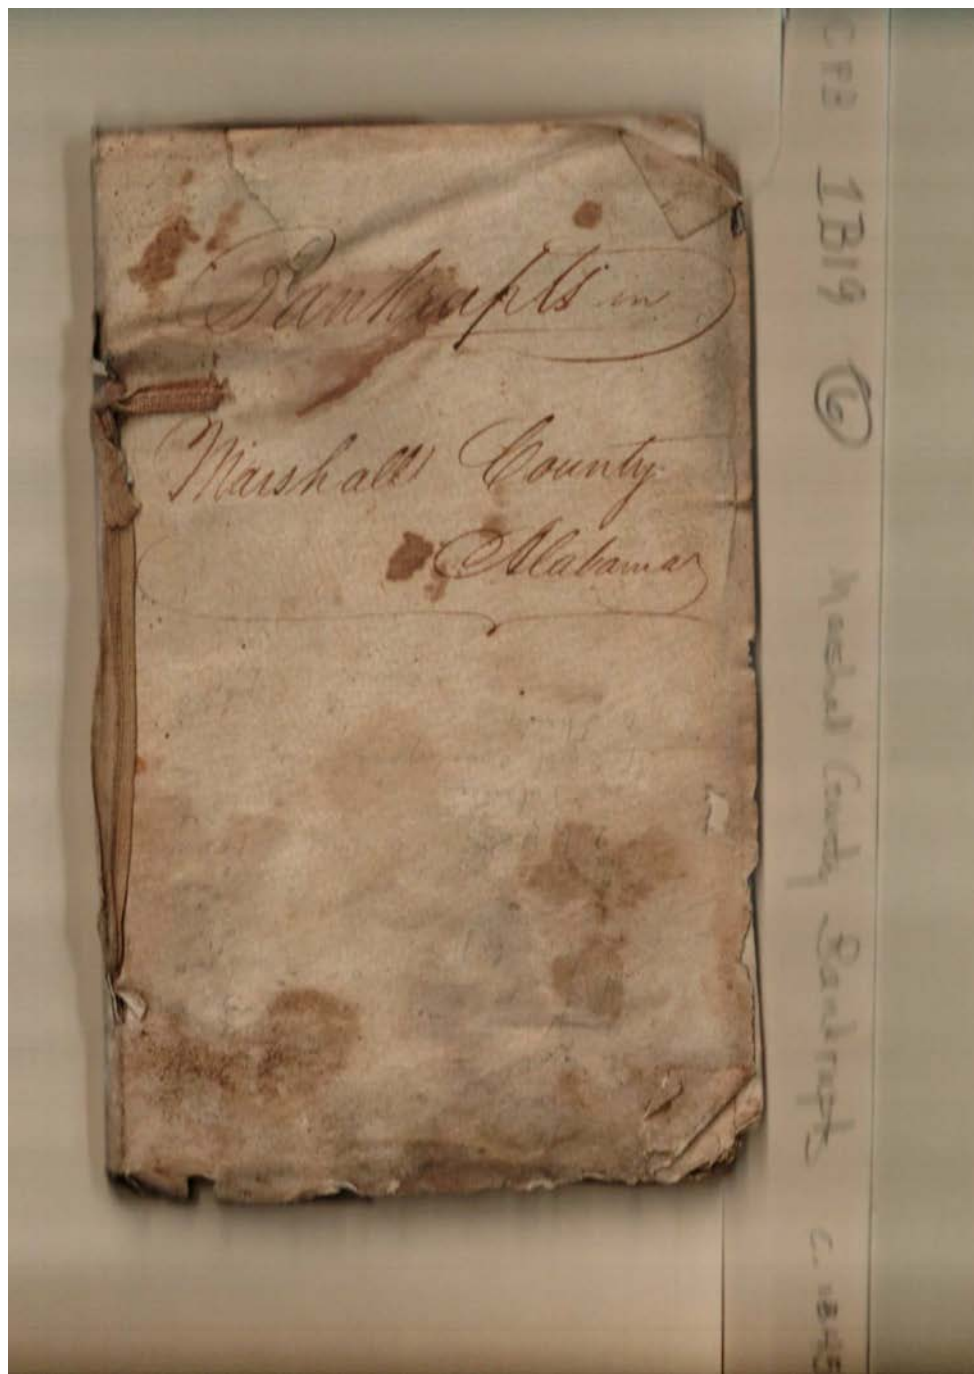 Bankrupts in
Marshall County
Alabama
CFB 1B19 6 Marshal County Bankrupts C. 1845